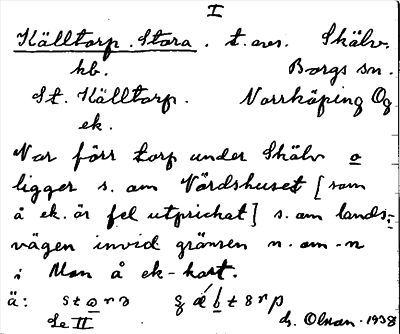 I
Källtorp. Stora. t. övs. Skälv.
hb. Borgs sn.
St. Källtorp. Norrköping Ög
ek.
Var förr torp under Skälv o
ligger s. om Vårdshuset [som
å ek. är fel utprickat] s. om lands-
vägen invid gränsen n. om -n
i Mon å ek-kart.
ä:
Se II dz. Olson - 1938